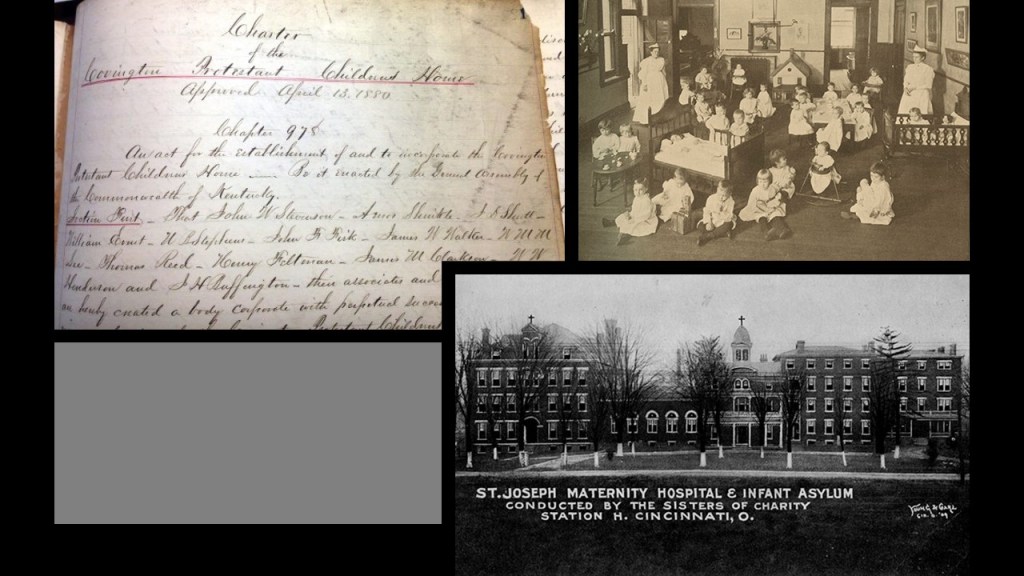 Charter
of the
Covington Protestant Children's Home
Approved April 13, 1880
Chapter 978
An act for the establishment of and to incorporate the Covington
Protestant Children's Home — Be it enacted by the General Assembly of
the Commonwealth of Kentucky.
Section First – That John W Stevenson – Amos Shinkle – J
William Ernst – Stephens – John F Fisk – James W Walker –
Thomas Reed – Henry Feltman – James M Clarkson –
Henderson and Buffington – their associates and
hereby created a body corporate with perpetual
Protestant Children
ST. JOSEPH MATERNITY HOSPITAL & INFANT ASYLUM
CONDUCTED BY THE SISTERS OF CHARITY
STATION H. CINCINNATI, O.